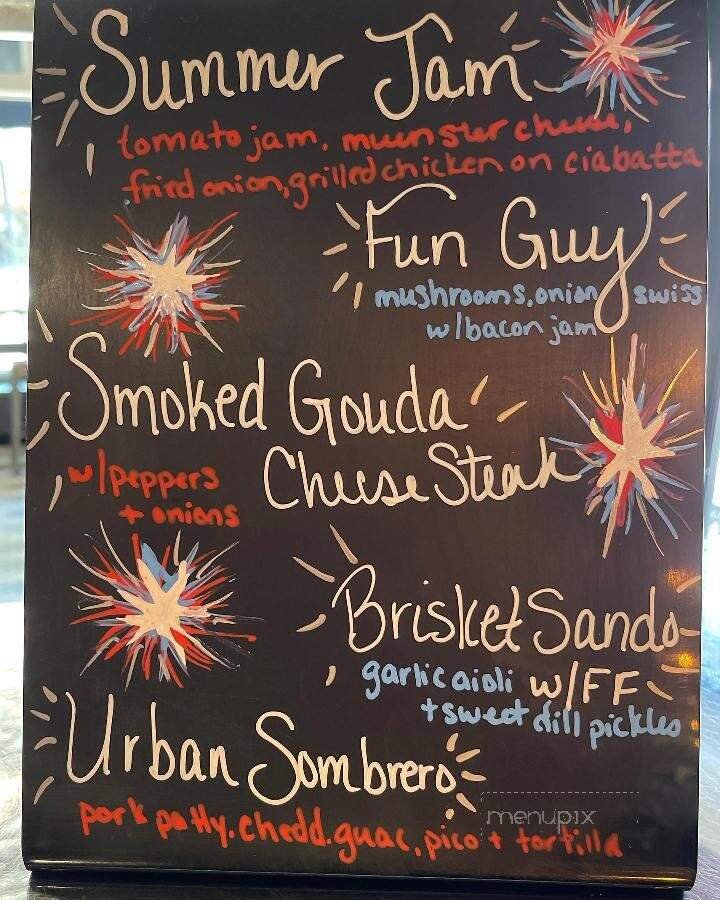 Summer Jam
tomato jam, muenster cheese,
fried onion, grilled chicken on ciabatta
Fun Guy
mushrooms, onion, swiss
w/bacon jam
Smoked Gouda
Cheese Steak
w/peppers
+ onions
Brisket Sando
garlic aioli w/FF
+ sweet dill pickles
Urban Sombrero
pork patty, chedd, guac, pico + tortilla
menupix